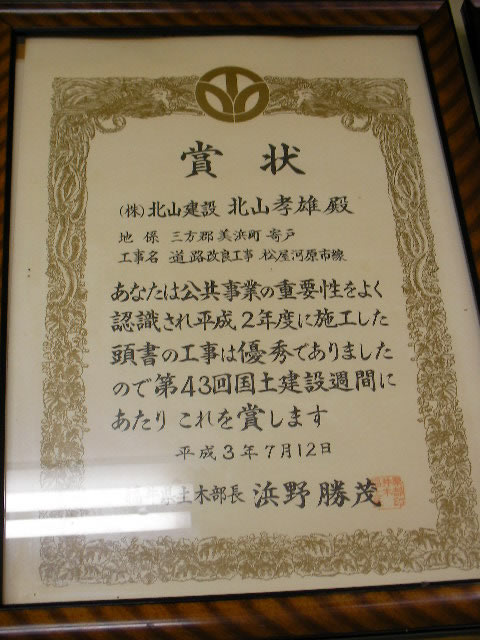 賞状
(株)北山建設 北山孝雄殿
地係 三方郡美浜町寄戸
工事名 道路改良工事 松屋河原市線
あなたは公共事業の重要性をよく
認識され平成2年度に施工した
頭書の工事は優秀でありました
ので第43回国土建設週間に
あたり これを賞します
平成3年7月12日
県土木部長 浜野勝茂